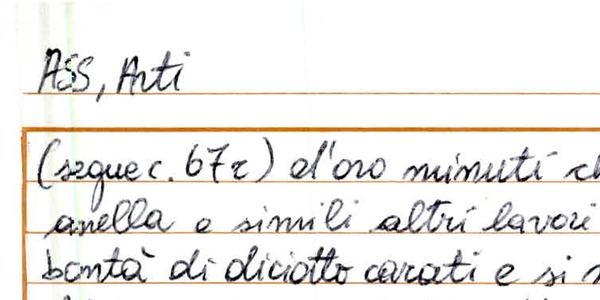 ASS, Arti
(segue c. 67r) d'oro minuti ch
anella e simili altri lavori
bontà di diciotto carati e si